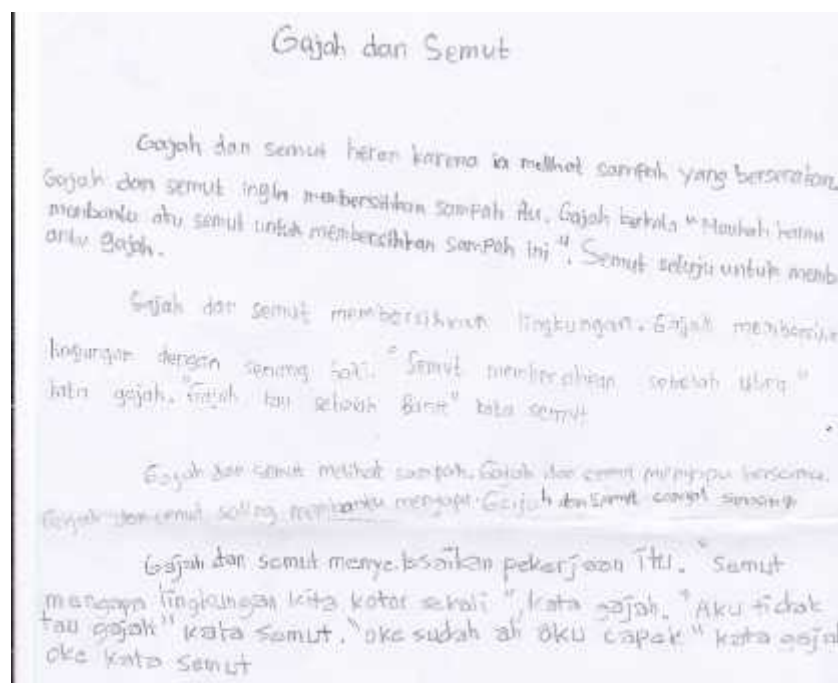 Gajah dan Semut
Gajah dan semut heran karena ia melihat sampah yang berserakan.
Gajah dan semut ingin membersihkan sampah itu. Gajah berkata "Maukah kamu
membantu aku semut untuk membersihkan sampah ini". Semut setuju untuk memb
antu gajah.
Gajah dan semut membersihkan lingkungan. Gajah membersihk
lingungan dengan senang "Semut membersihkan sebelah utara"
kata gajah. "Gajah kau sebelah Barat" kata semut
Gajah dan semut melihat sampah. Gajah dan semut menyapu bersama.
Gajah dan semut saling membantu menyapu. Gajah dan semut sangat senang
Gajah dan semut menyelesaikan pekerjaan itu. "Semut
mengapa lingkungan kita kotor sekali", kata gajah. "Aku tidak
tau gajah" kata semut. "oke sudah ah aku capek" kata gajah
oke kata semut